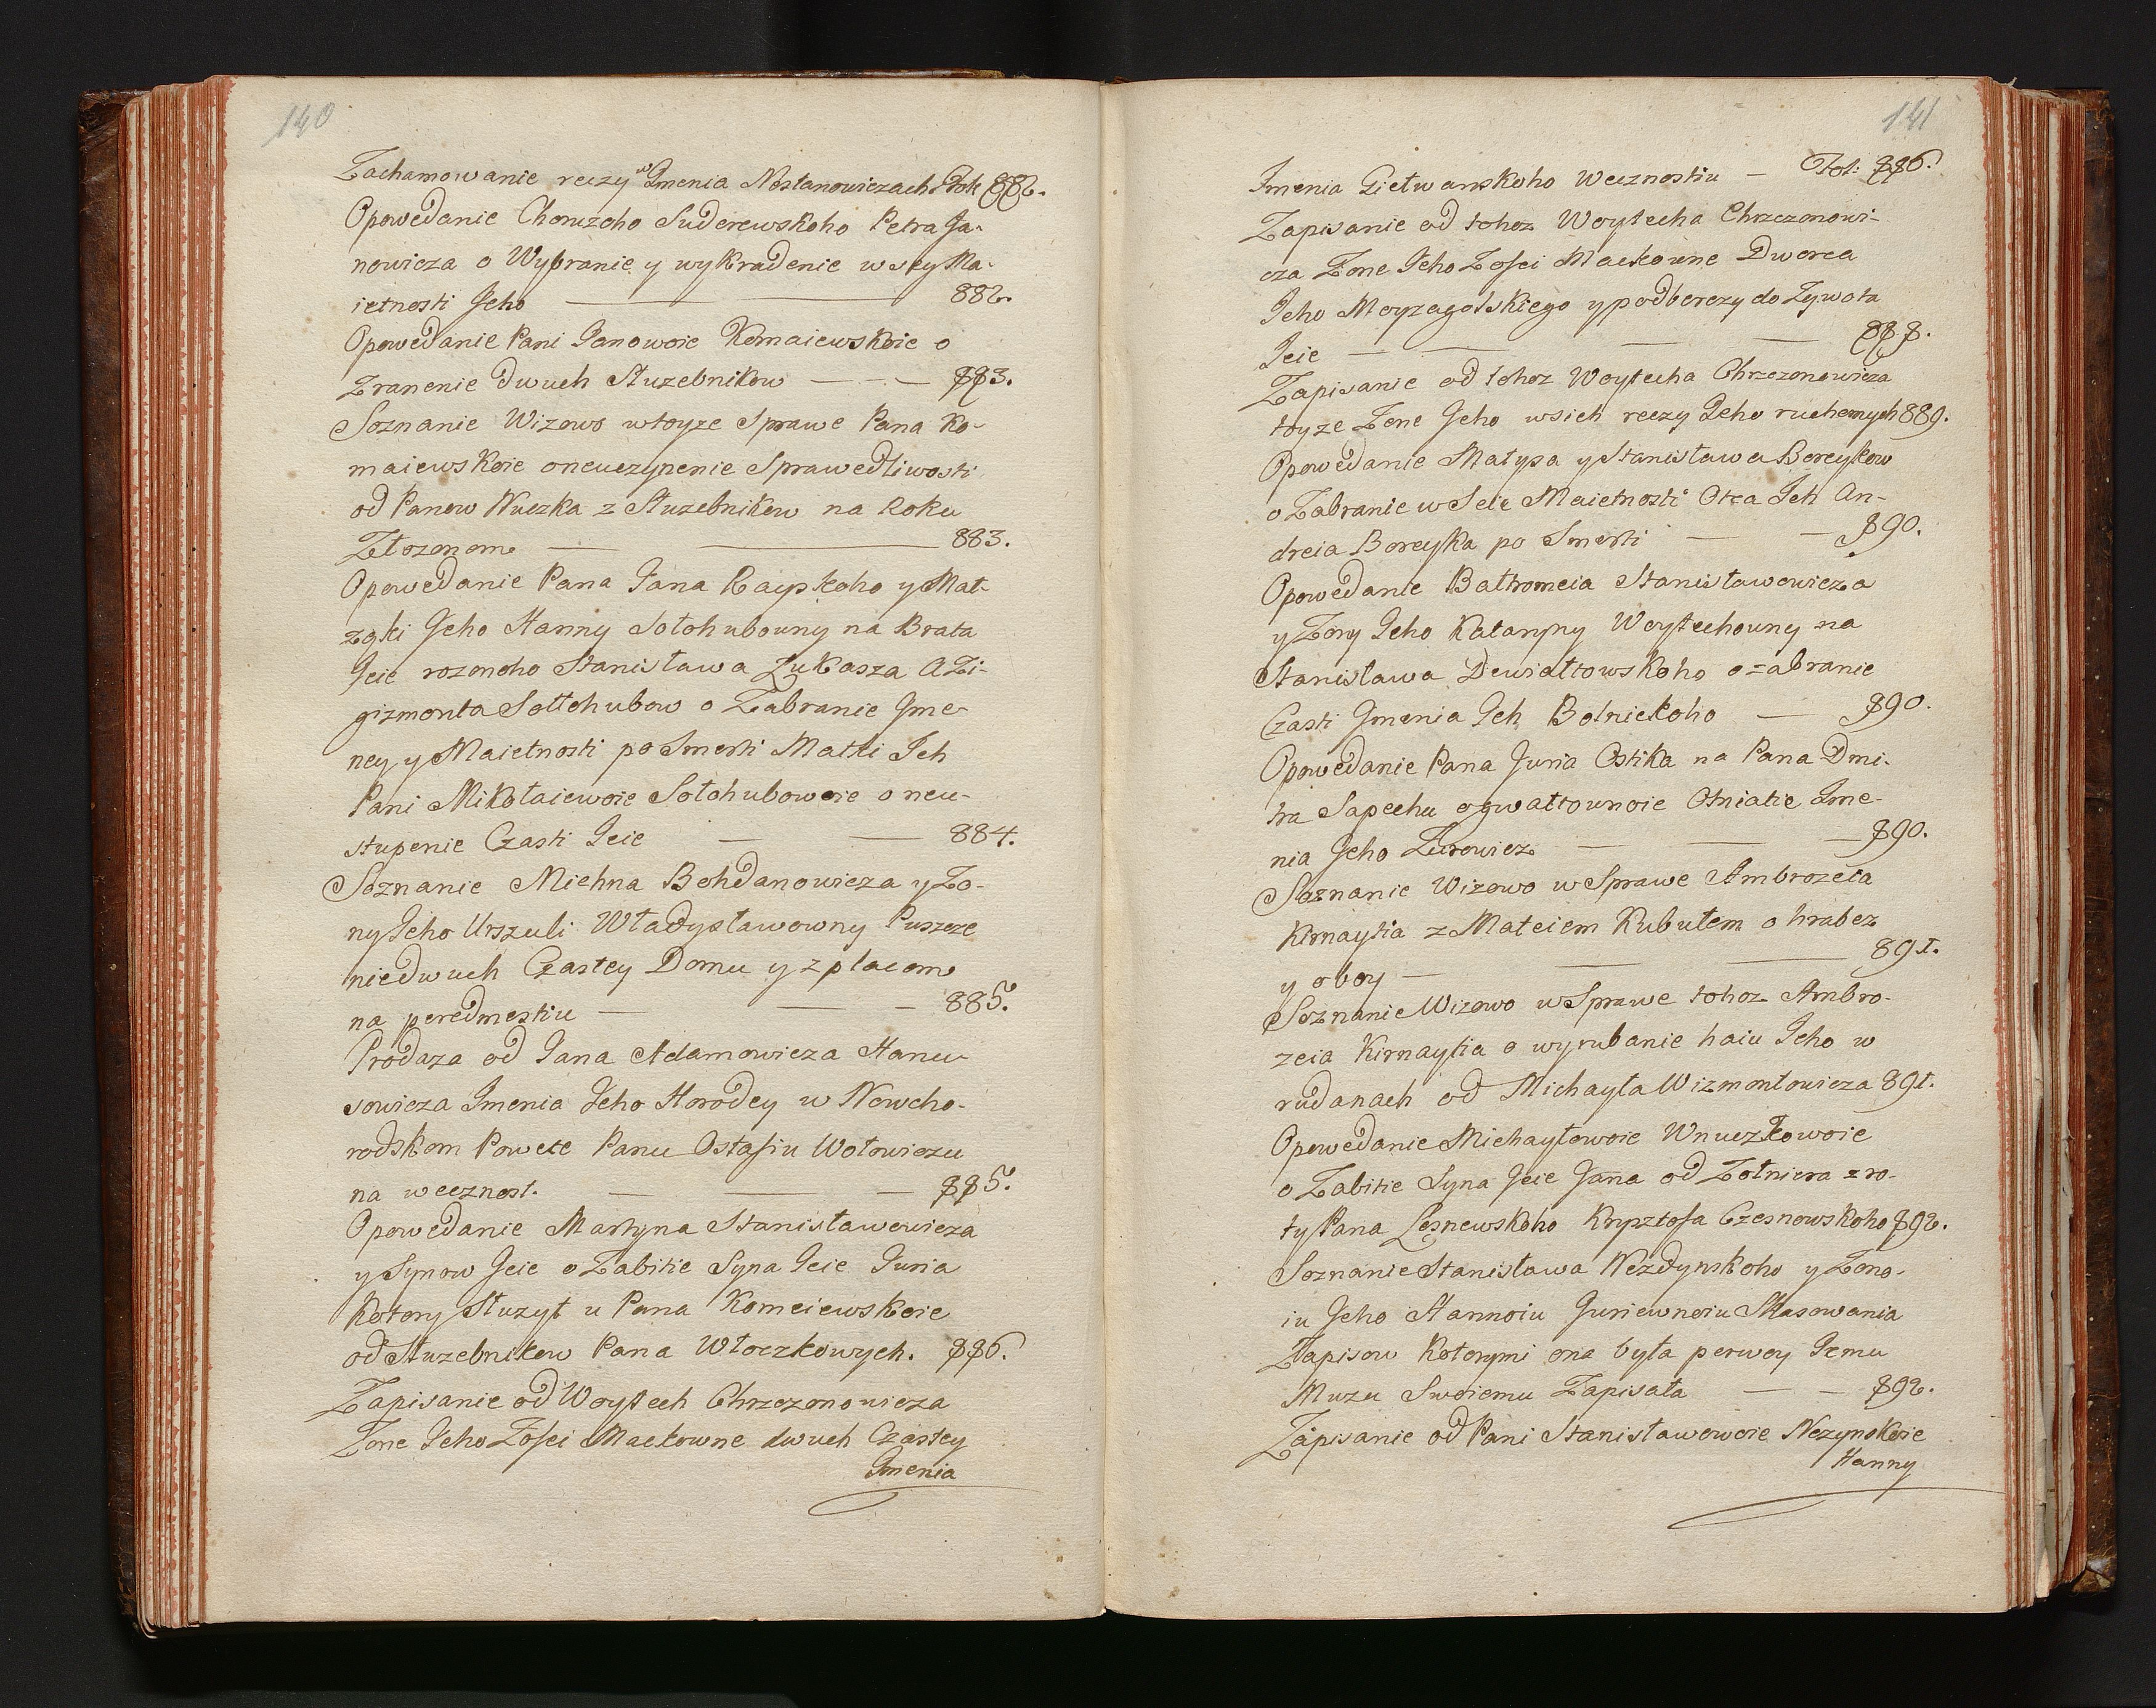 140
Zachamowanie reczy w Imenia Nostanowiczach Fol: 882.
Opowedanie Choruzoho Suderewskoho Petra Ja-
nowicza o Wybranie y wykradenie wsey Ma-
ietnosti Jeho 882.
Opowedanie Pani Janowoie Komaiewskoie o
Zranenie dwuch Służebnikow 883.
Soznanie Wizowo w toyze Sprawe Pana Ko-
maiewskoie o neuczynenie Sprawedliwosti
od Panow Nuczka z Służebnikow na Roku
Złozonom 883.
Opowedanie Pana Jana Rayskoho y Mał-
zgki Jeho Hanny Sołohubouny na Brata
Jeie rozonoho Stanisława Łukasza a Zi-
gizmonta Sołłohubow o Zabranie Ime-
ney y Maietnosti po Smerti Matki Jch
Pani Mikołaiewoie Sołohubowoie o neu-
stupenie Czasti Jeie 884.
Soznanie Michna Bohdanowicza y Zo-
ny Jeho Urszuli Władysławowny Puszcze
nie dwuch Czastey Domu y z placom
na peredmestiu 885.
Prodaza od Jana Adamowicza Hanu-
sowicza Imenia Jeho Horodey w Nowho-
rodskom Powete Panu Ostafiu Wołowiczu
na wecznost. 885.
Opowedanie Martyna Stanisławowicza
y Synow Jeie o Zabitie Syna Jeie Juria
Kotory Służył u Pana Komeiewskoie
od Służebnikow Pana Włoczkowych. 886.
Zapisanie od Woytech Chrzczonowicza
Zone Jeho Zofei Mackowne dwuch Czastey
Imenia
141
Imenia Gietwanskoho Wecznostiu Fol: 886.
Zapisanie od tohoz Woytecha Chrzczonowi-
cza Zone Jeho Zofei Mackowne Dworca
Jeho Moyzagolskiego y podberezy do Zywota
Jeie 888.
Zapisanie od tohoz Woytecha Chrzczonowicza
toyze Zone Jeho wsich reczy Jeho ruchomych 889.
Opowedanie Matysa y Stanisława Boreykow
o Zabranie wseie Maietnosti Otca Jch An-
dreia Boreyka po Smerti 890.
Opowedanie Bałtromeia Stanisławowicza
y Zony Jeho Kataryny Woytechouny na
Stanisława Dewiałtowskoho o zabranie
Czasti Imenia Jch Bolnickoho 890.
Opowedanie Pana Juria Ostika na Pana Dmi-
tra Sapechu o gwałtounoie Otniatie Ime-
nia Jeho Zurowicz 890.
Soznanie Wizowo w Sprawe Ambrozeia
Kirnaytia z Mateiem Kubułem o hrabez
y o boy 891.
Soznanie Wizowo w Sprawe tohoz Ambro-
zeia Kirnaytia o wyrubanie haiu Jeho w
rudanach od Michayła Wizmontowicza 891.
Opowedanie Michayłowoie Wnuczkowoie
o Zabitie Syna Jeie Jana od Zołniera z ro-
ty Pana Lesnewskoho Krysztofa Czesnowskoho 892.
Soznanie Stanisława Nezdynskoho y Zono-
iu Jeho Hannoiu Juriewnoiu Skasowania
Zapisow Kotorymi ona była perwey Jemu
Muzu Swoiemu Zapisała 892.
Zapisanie od Pani Stanisławowoie Nezynskoie
Hanny